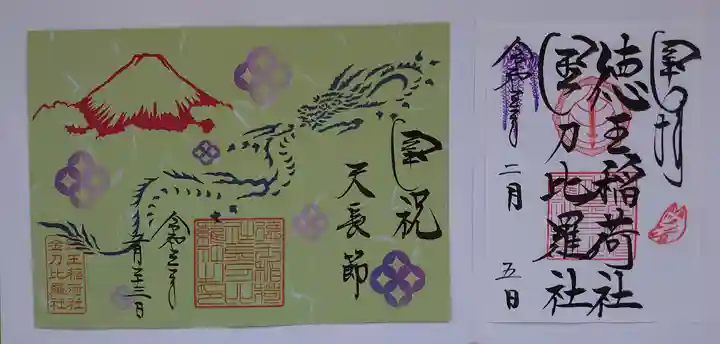 奉拝
徳王稲荷社
金刀比羅社
令和三年
二月 五日
奉祝
天長節
令和三年
二月二十三日
王稲荷社
金刀比羅社